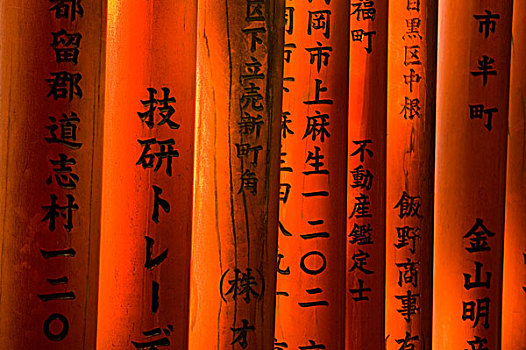 市半町
金山明
目黒区中根
飯野商事有
福町
不動産鑑定士
岡市上麻生一二〇二
区下立売新町角
(株)オ
技研トレーデ
都留郡道志村一二〇